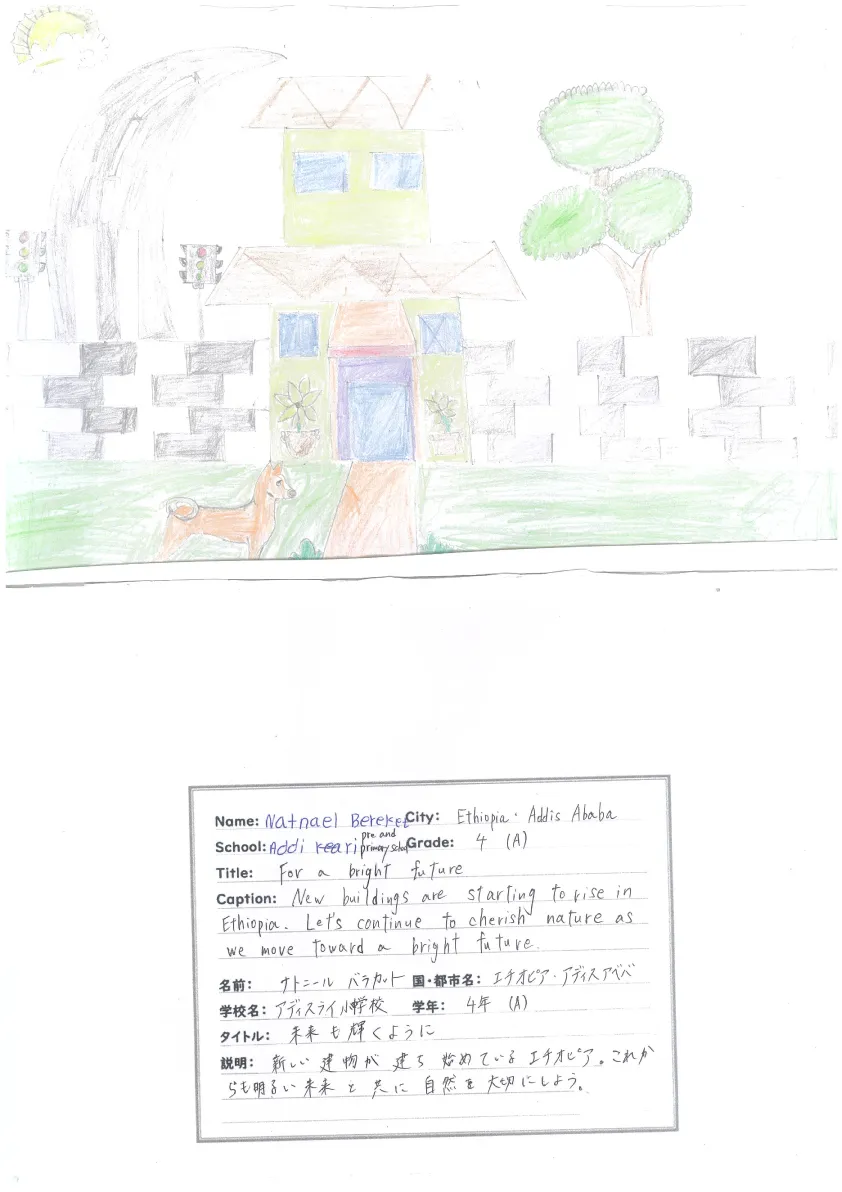 Name: Natnael Bereket City: Ethiopia・Addis Ababa
School: Addi pre and primary school Grade: 4 (A)
Title: For a bright future
Caption: New buildings are starting to rise in
Ethiopia. Let's continue to cherish nature as
we move toward a bright future.
名前: ナトニール バラカット 国・都市名: エチオピア・アディスアベバ
学校名: 学年: 4年 (A)
タイトル: 未来も輝くように
説明: 新しい建物が建ち始めているエチオピア。これか
らも明るい未来と共に自然を大切にしよう。